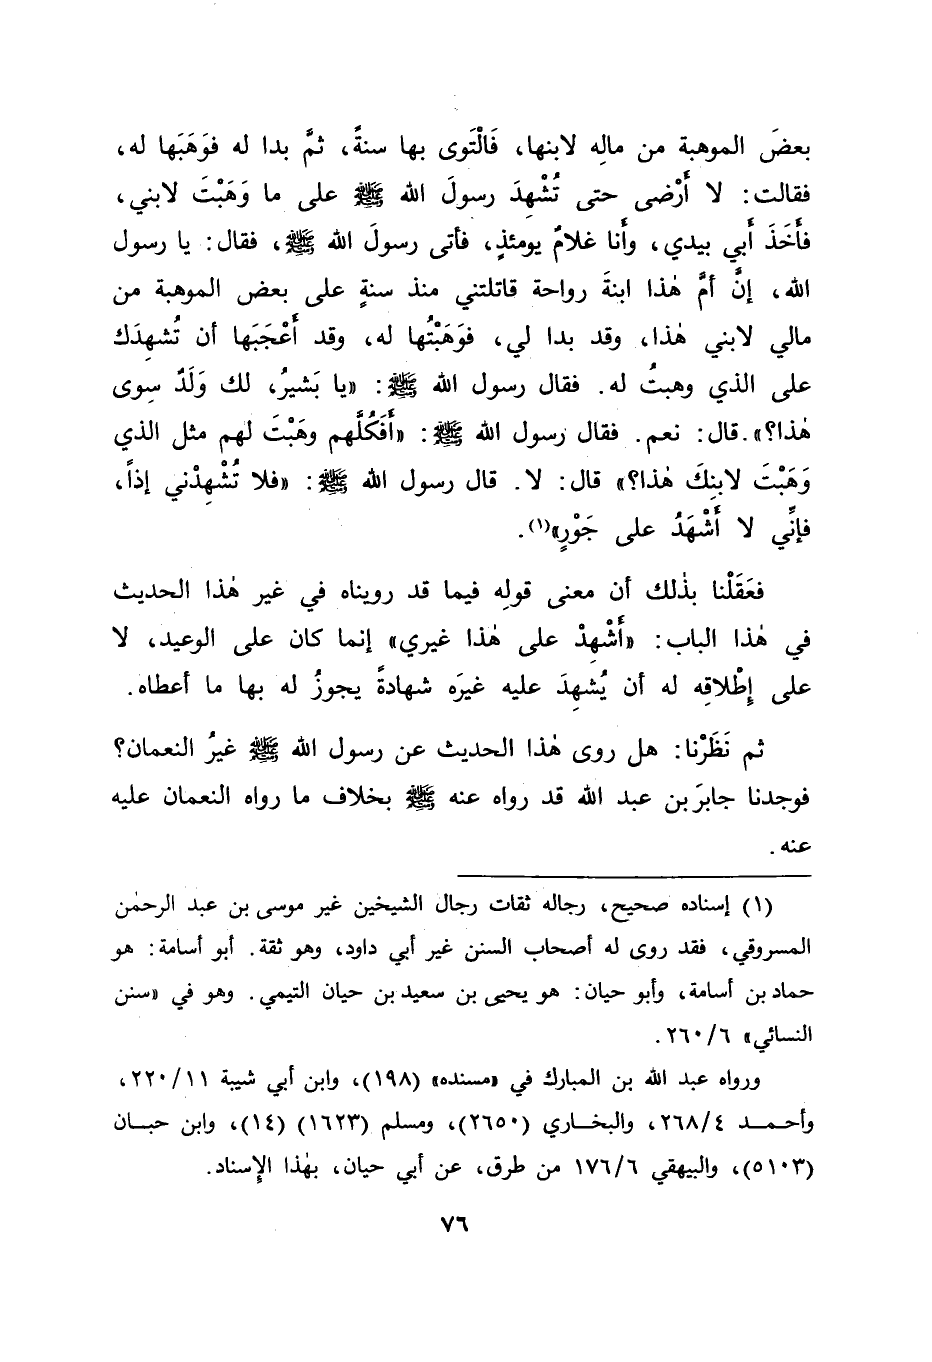 بعضَ الموهبة من مالِه لابنها، فَالْتَوى بها سنةً، ثمَّ بدا له فوَهَبَها له،
فقالت: لا أَرْضى حتى تُشْهِدَ رسولَ الله ﷺ على ما وَهَبْتَ لابني،
فأَخَذَ أَبي بيدي، وأَنا غلامٌ يومئذٍ، فأتى رسولَ الله ﷺ، فقال: يا رسول
الله، إنَّ أمَّ هٰذا ابنةَ رواحة قاتلتني منذ سنةٍ على بعض الموهبة من
مالي لابني هٰذا، وقد بدا لي، فوَهَبْتُها له، وقد أَعْجَبَها أن تُشهِدَك
على الذي وهبتُ له. فقال رسول الله ﷺ: «يا بَشيرُ، لك وَلَدٌ سِوى
هٰذا؟».قال: نعم. فقال رسول الله ﷺ: «أَفَكُلَّهم وهَبْتَ لهم مثل الذي
وَهَبْتَ لابنِكَ هٰذا؟» قال: لا. قال رسول الله ﷺ: «فلا تُشْهِدْني إذاً،
فإنِّي لا أَشْهَدُ على جَوْرٍ»(١).
فعَقَلْنا بذٰلك أن معنى قولِه فيما قد رويناه في غير هٰذا الحديث
في هٰذا الباب: «أَشْهِدْ على هٰذا غيري» إنما كان على الوعيد، لا
على إِطْلاقِه له أن يُشهِدَ عليه غيرَه شهادةً يجوزُ له بها ما أعطاه.
ثم نَظَرْنا: هل روى هٰذا الحديث عن رسول الله ﷺ غيرُ النعمان؟
فوجدنا جابرَ بن عبد الله قد رواه عنه ﷺ بخلاف ما رواه النعمان عليه
عنه.
(١) إسناده صحيح، رجاله ثقات رجال الشيخين غير موسى بن عبد الرحمٰن
المسروقي، فقد روى له أصحاب السنن غير أبي داود، وهو ثقة. أبو أسامة: هو
حماد بن أسامة، وأبو حيان: هو يحيى بن سعيد بن حيان التيمي. وهو في «سنن
النسائي» ٢٦٠/٦.
ورواه عبد الله بن المبارك في «مسنده» (١٩٨)، وابن أبي شيبة ٢٢٠/١١،
وأحمد ٢٦٨/٤، والبخاري (٢٦٥٠)، ومسلم (١٦٢٣) (١٤)، وابن حبان
(٥١٠٣)، والبيهقي ١٧٦/٦ من طرق، عن أبي حيان، بهٰذا الإِسناد.
٧٦